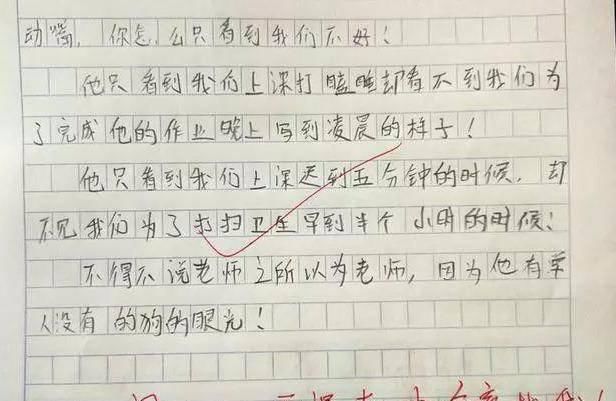 动嘴，你怎么只看到我们不好！
他只看到我们上课打瞌睡却看不到我们为
了完成他的作业晚上写到凌晨的样子！
他只看到我们上课迟到五分钟的时候，却
不见我们为了打扫卫生早到半个小时的时候！
不得不说老师之所以为老师，因为他有常
人没有的狗的眼光！